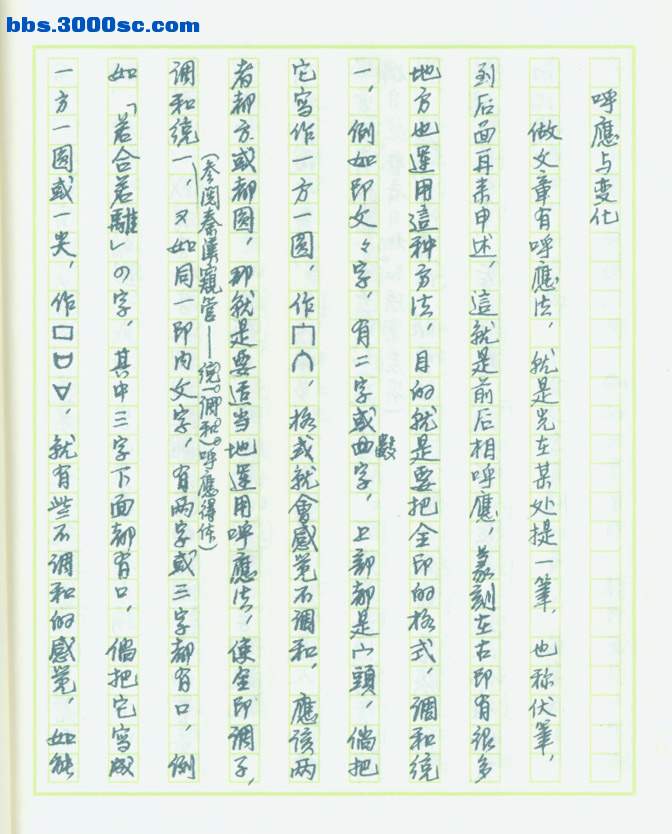 bbs.3000sc.com
呼應与变化
做文章有呼應法，就是先在某处提一筆，也称伏筆，
到后面再来申述，這就是前后相呼應，篆刻在古印有很多
地方也運用這种方法，目的就是要把全印的格式，调和统
一，例如印文々字，有二字或数字，上部都是宀頭，倘把
它写作一方一圆，作冂∩，格式就會感觉不调和，應该两
者都方或都圆，那就是要适当地運用呼應法，使全印调子，
(参阅秦漢窺管——统一调和)呼應得体)
调和统一，又如同一印内文字，有两字或三字都有口，例
如「若合若離」の字，其中三字下面都有口，倘把它写成
一方一圆或一尖，作口，就有些不调和的感觉，如能